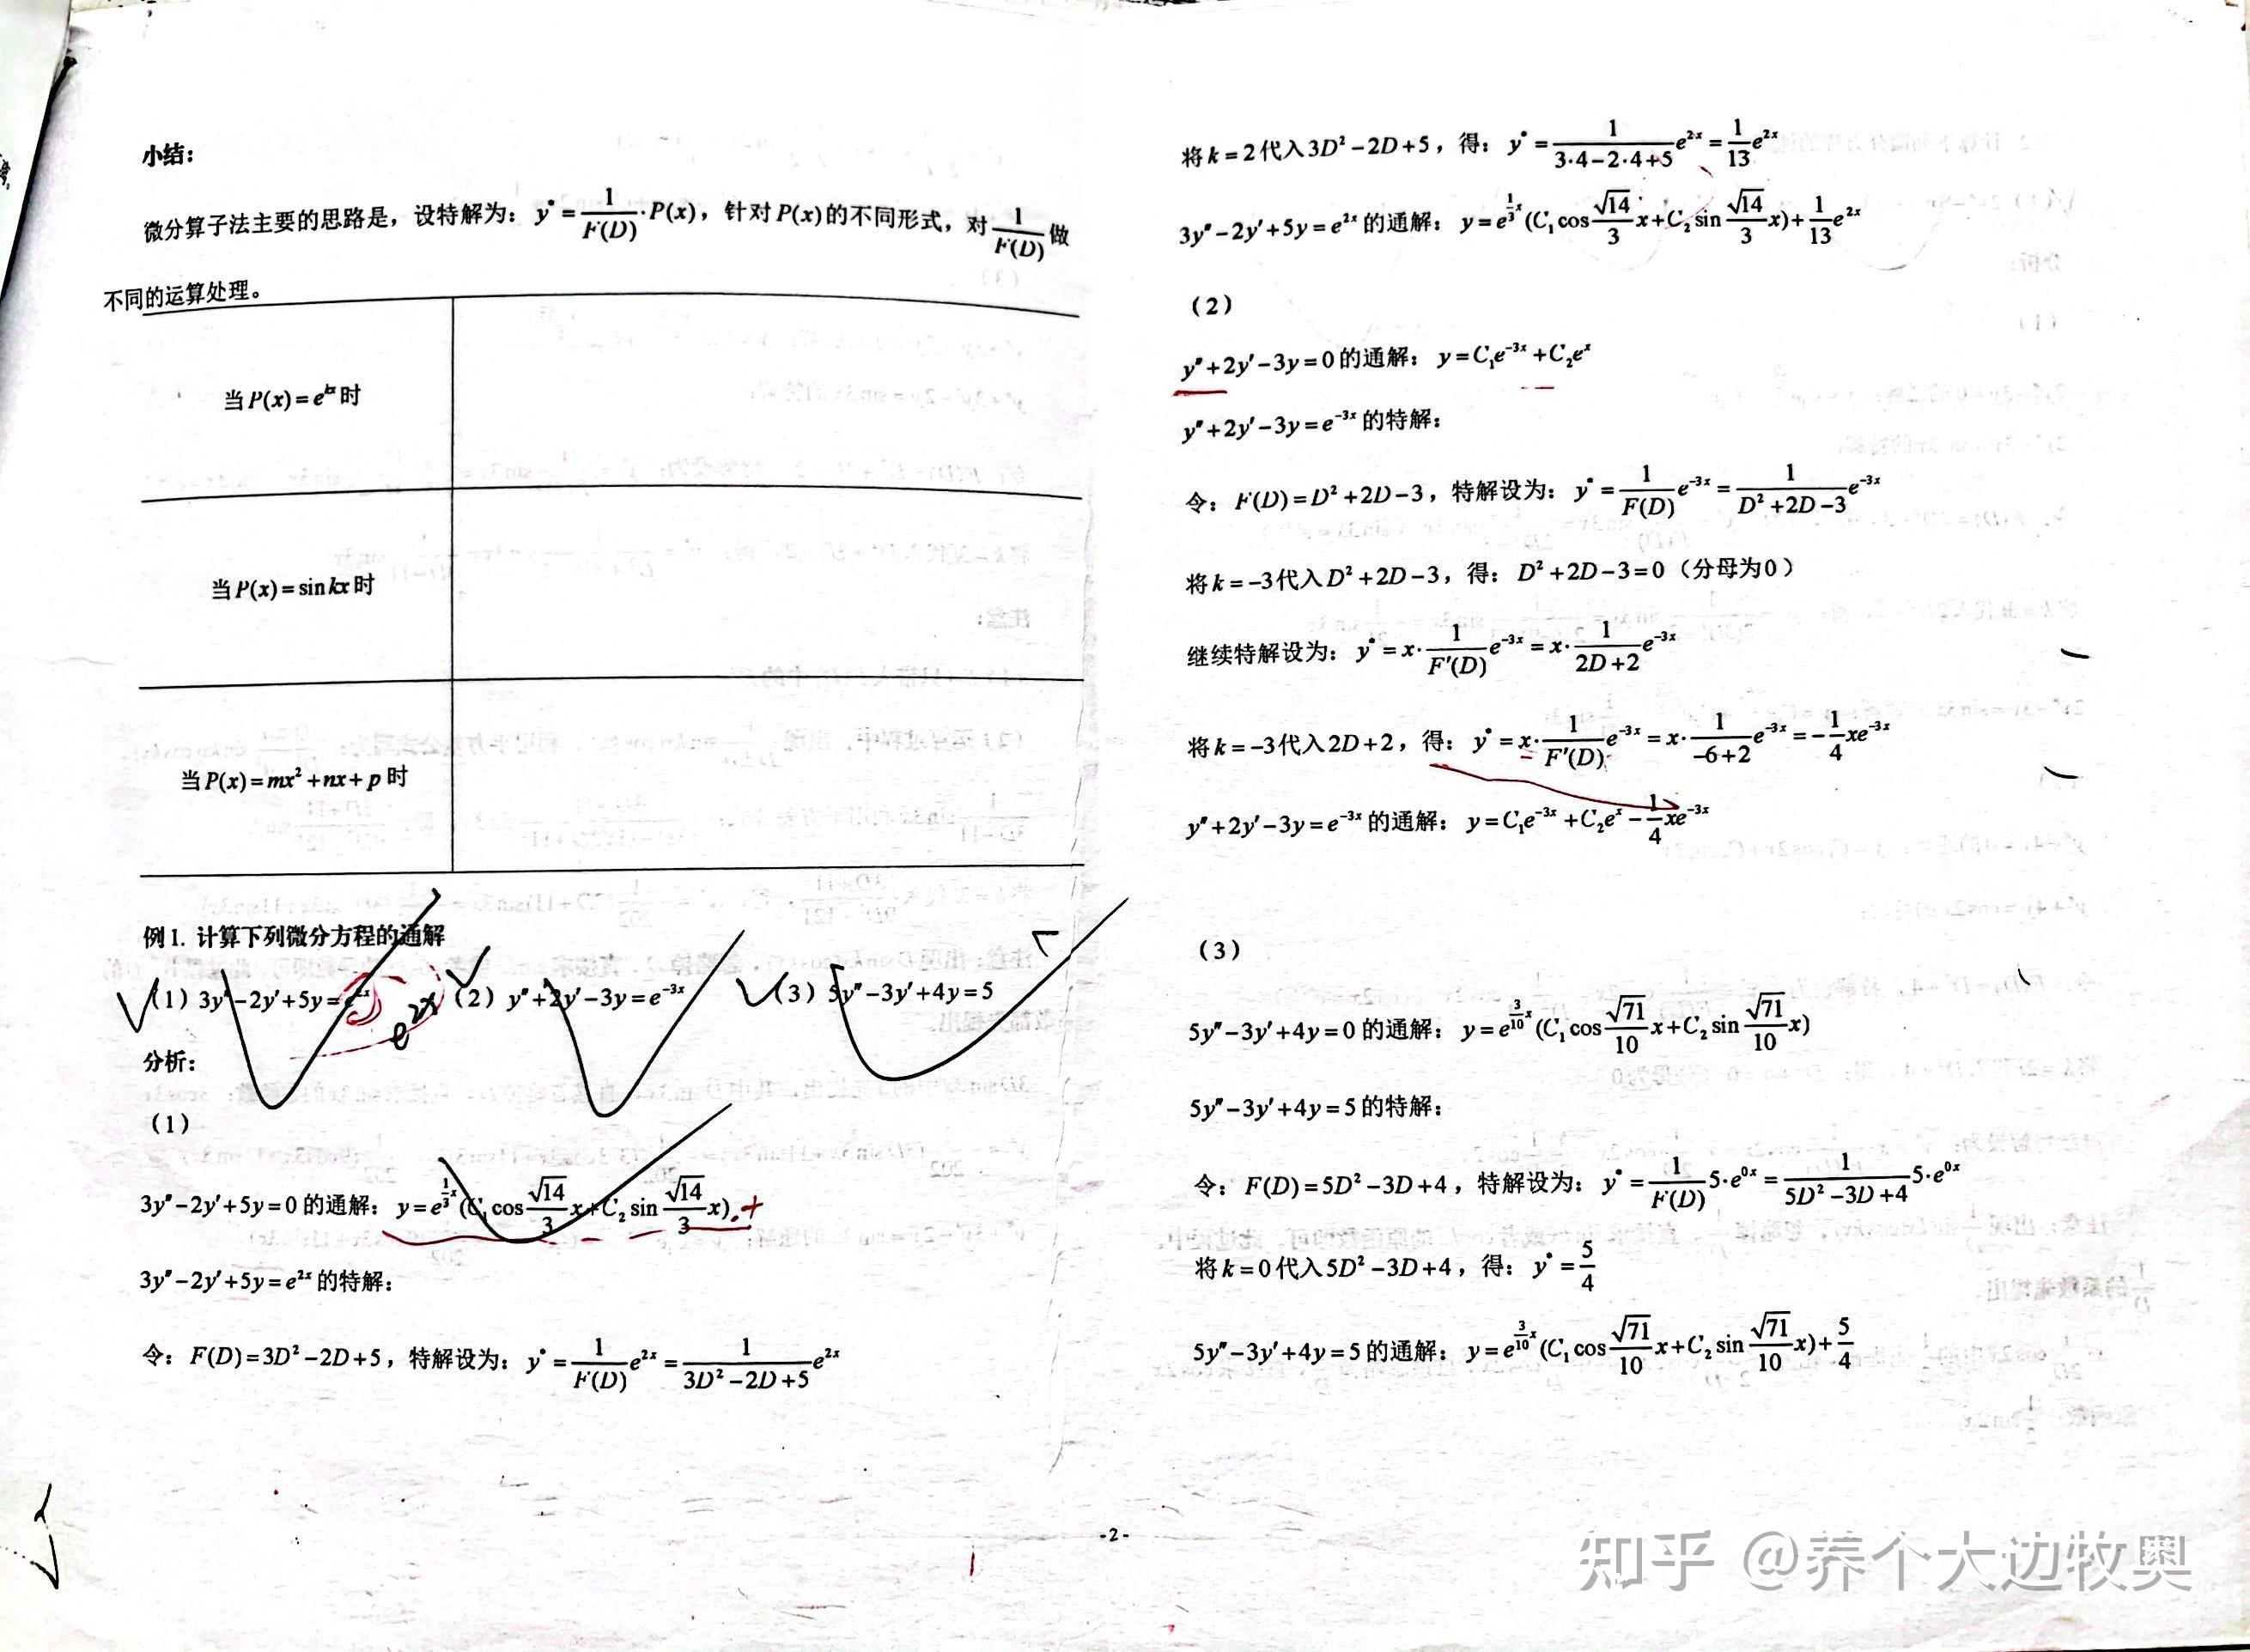 小结：
微分算子法主要的思路是，设特解为：y* = 1/F(D) · P(x)，针对P(x)的不同形式，对 1/F(D) 做
不同的运算处理。
当P(x)=e^{kx}时
当P(x)=sin kx时
当P(x)=mx²+nx+p时
例1. 计算下列微分方程的通解
（1）3y″-2y′+5y=e^{2x} （2）y″+2y′-3y=e^{-3x} （3）5y″-3y′+4y=5
e^{2x}
分析：
（1）
3y″-2y′+5y=0的通解：y=e^{1/3 x}(C₁cos √14/3 x+C₂sin √14/3 x).+
3y″-2y′+5y=e^{2x}的特解：
令：F(D)=3D²-2D+5，特解设为：y* = 1/F(D) e^{2x} = 1/(3D²-2D+5) e^{2x}
将k=2代入3D²-2D+5，得：y* = 1/(3·4-2·4+5) e^{2x} = 1/13 e^{2x}
3y″-2y′+5y=e^{2x}的通解：y=e^{1/3 x}(C₁cos √14/3 x+C₂sin √14/3 x)+1/13 e^{2x}
（2）
y″+2y′-3y=0的通解：y=C₁e^{-3x}+C₂e^{x}
y″+2y′-3y=e^{-3x}的特解：
令：F(D)=D²+2D-3，特解设为：y* = 1/F(D) e^{-3x} = 1/(D²+2D-3) e^{-3x}
将k=-3代入D²+2D-3，得：D²+2D-3=0（分母为0）
继续特解设为：y* = x· 1/F′(D) e^{-3x} = x· 1/(2D+2) e^{-3x}
将k=-3代入2D+2，得：y* = x· 1/F′(D) e^{-3x} = x· 1/(-6+2) e^{-3x} = -1/4 xe^{-3x}
y″+2y′-3y=e^{-3x}的通解：y=C₁e^{-3x}+C₂e^{x}-1/4 xe^{-3x}
（3）
5y″-3y′+4y=0的通解：y=e^{3/10 x}(C₁cos √71/10 x+C₂sin √71/10 x)
5y″-3y′+4y=5的特解：
令：F(D)=5D²-3D+4，特解设为：y* = 1/F(D) 5·e^{0x} = 1/(5D²-3D+4) 5·e^{0x}
将k=0代入5D²-3D+4，得：y* = 5/4
5y″-3y′+4y=5的通解：y=e^{3/10 x}(C₁cos √71/10 x+C₂sin √71/10 x)+5/4
-2-
知乎 @养个大边牧奥